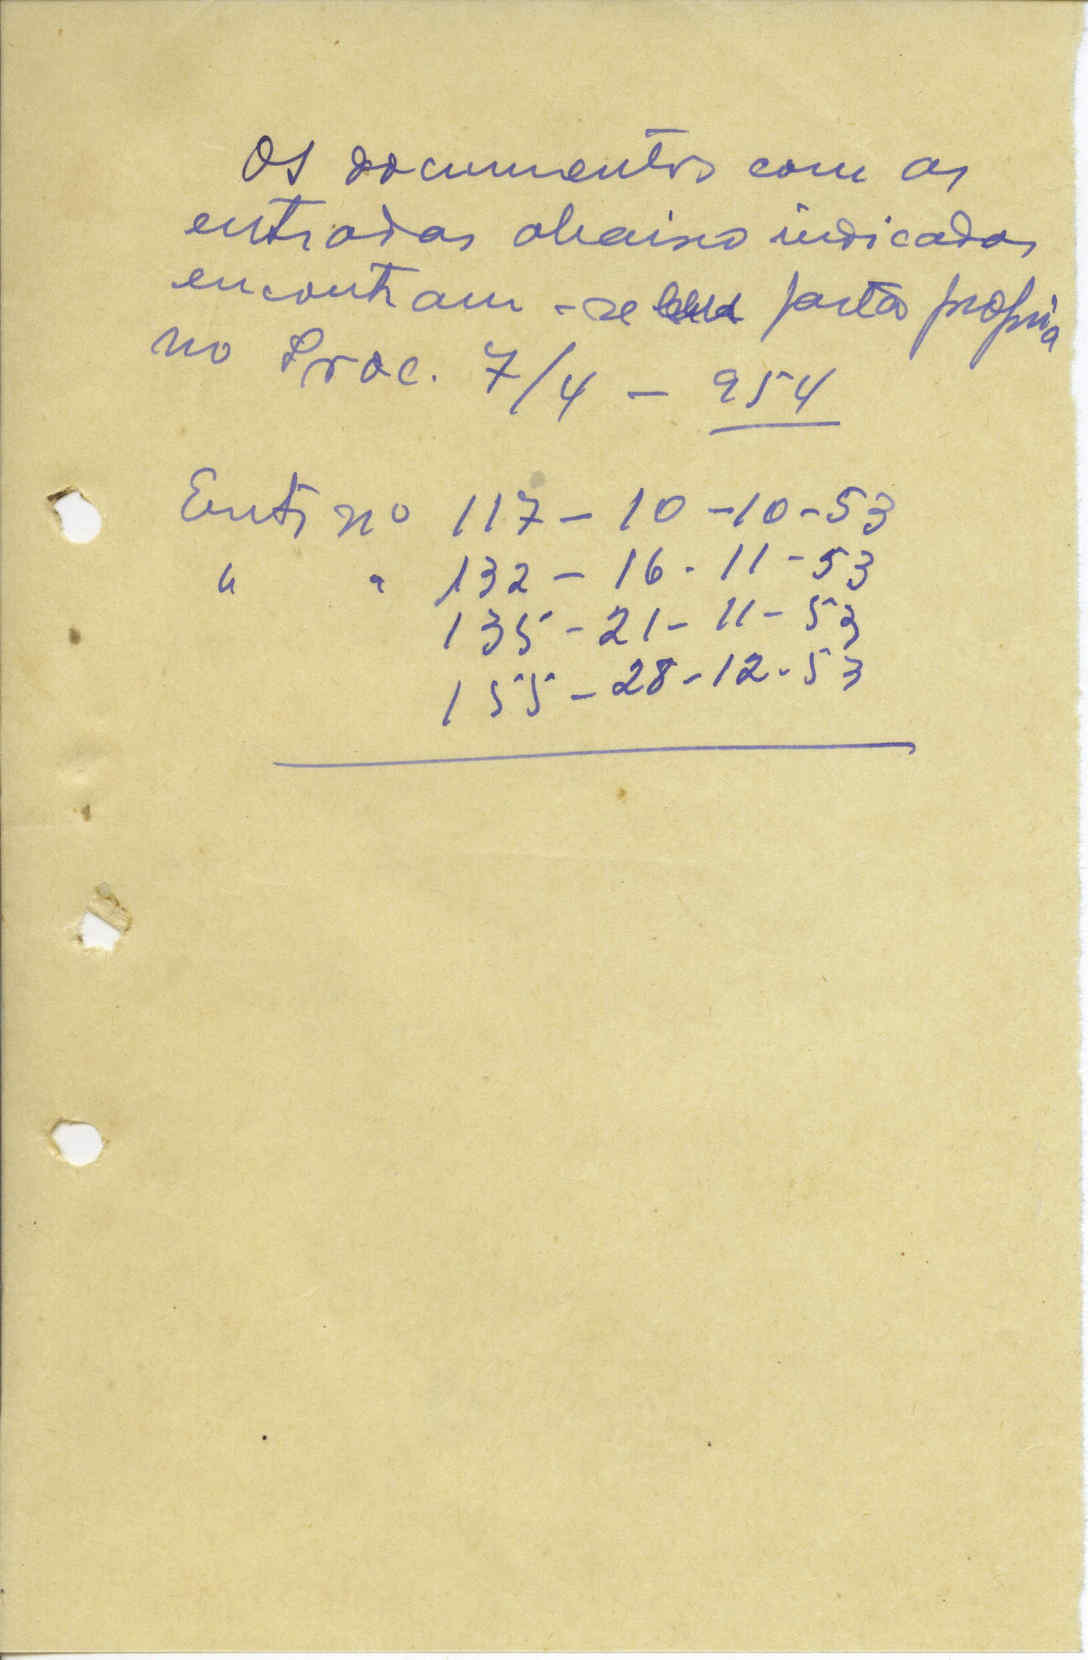 Os documentos com as
entradas abaixo indicadas
encontram-se em pasta propria
no Proc. 7/4 - 954
Entr no 117 - 10 - 10 - 53
" " 132 - 16 - 11 - 53
135 - 21 - 11 - 53
155 - 28 - 12 - 53